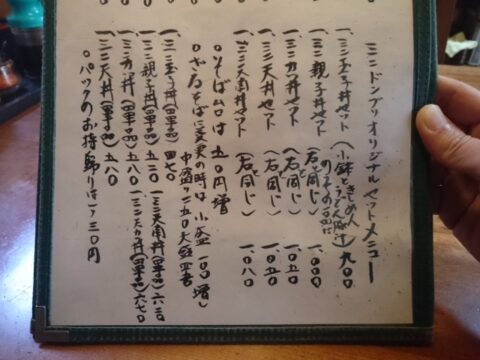 ミニドンブリオリジナルセットメニュー
一、ミニ玉子丼セット（小鉢ときしめん うどん 豚汁 のその一品に）九〇〇
一、ミニ親子丼セット（右と同じ）一、〇〇〇
一、ミニカツ丼セット（右と同じ）一、〇五〇
一、ミニ天丼セット（右と同じ）一、〇五〇
一、ミニ天南丼セット（右と同じ）一、〇八〇
〇そば は 五〇円増
〇やきそばに変更の時は 小盛一〇〇増し
中盛一五〇大盛
一、ミニ玉子丼（単品）四七〇
一、ミニ親子丼（単品）五二〇 一、ミニ天南丼（単品）六三〇
一、ミニカツ丼（単品）五八〇 一、ミニ天カツ丼（単品）六七〇
一、ミニ天丼（単品）五八〇
〇パックのお持帰りは一ケ三〇円